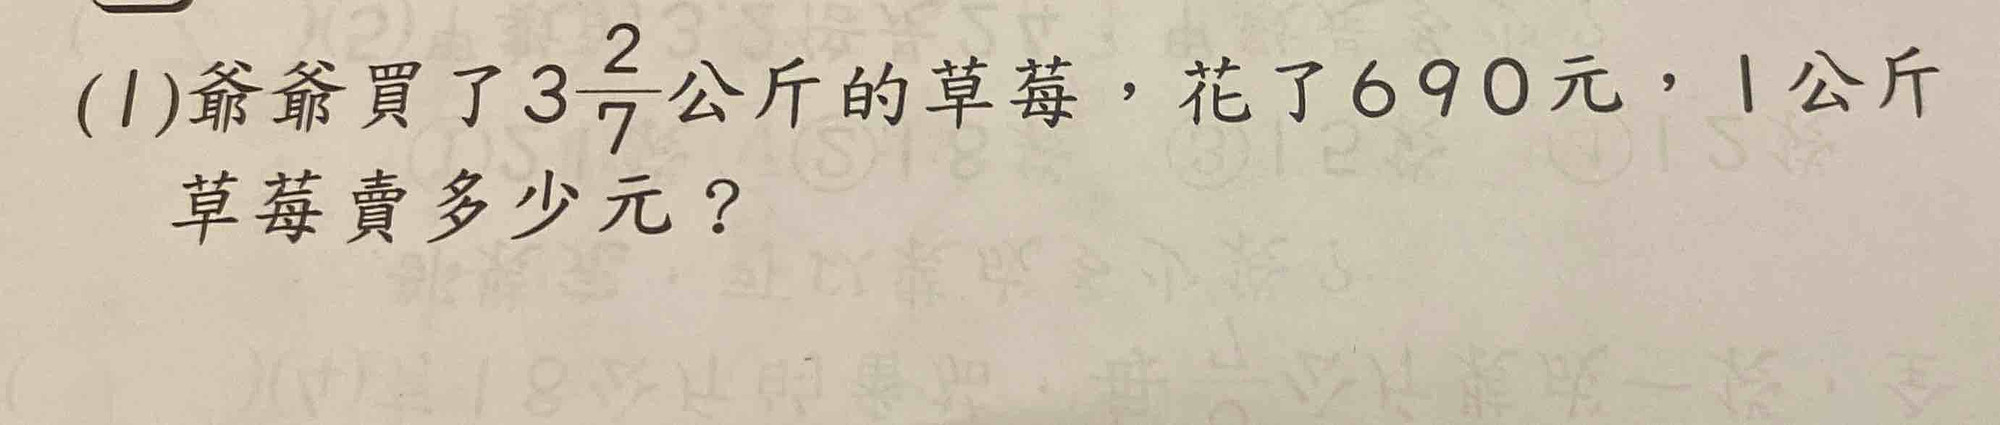 (1)爺爺買了3 2/7公斤的草莓，花了690元，1公斤
草莓賣多少元？